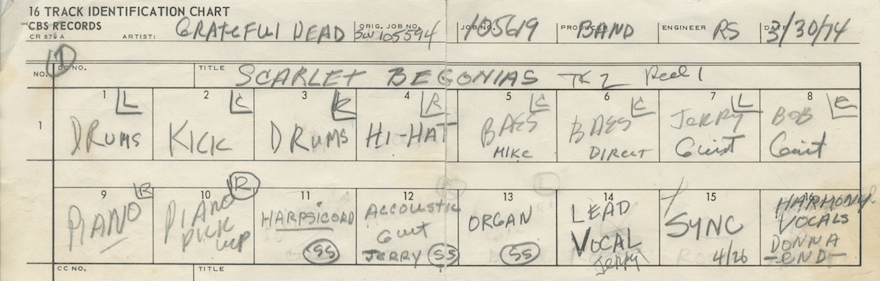 16 TRACK IDENTIFICATION CHART
CBS RECORDS
CR 879 A ARTIST: GRATEFUL DEAD ORIG. JOB NO. SW 105594 JOB NO. 105619 PRODUCER BAND ENGINEER RS DATE 3/30/74
NO. 1 CC NO. TITLE SCARLET BEGONIAS TK 2 Reel 1
1 L 2 C 3 4 R 5 C 6 C 7 L 8 C
1 DRUMS KICK DRUMS HI-HAT BASS MIKE BASS DIRECT JERRY Guit BOB Guit
9 R 10 R 11 12 13 14 15
PIANO PIANO PICK UP HARPSICORD SS ACCOUSTIC Guit JERRY SS ORGAN SS LEAD VOCAL Jerry SYNC 4/26 HARMONY VOCALS DONNA -END-
CC NO. TITLE